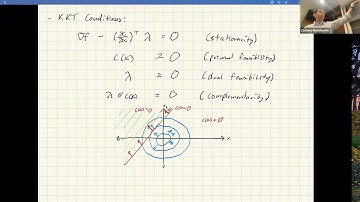 - KKT Conditions:
∇f - (∂c/∂x)ᵀ λ = 0 (stationarity)
c(x) ≥ 0 (primal feasibility)
λ ≥ 0 (dual feasibility)
λ ⊙ c(x) = 0 (complementarity)
c(x)>0
c(x)=0
x